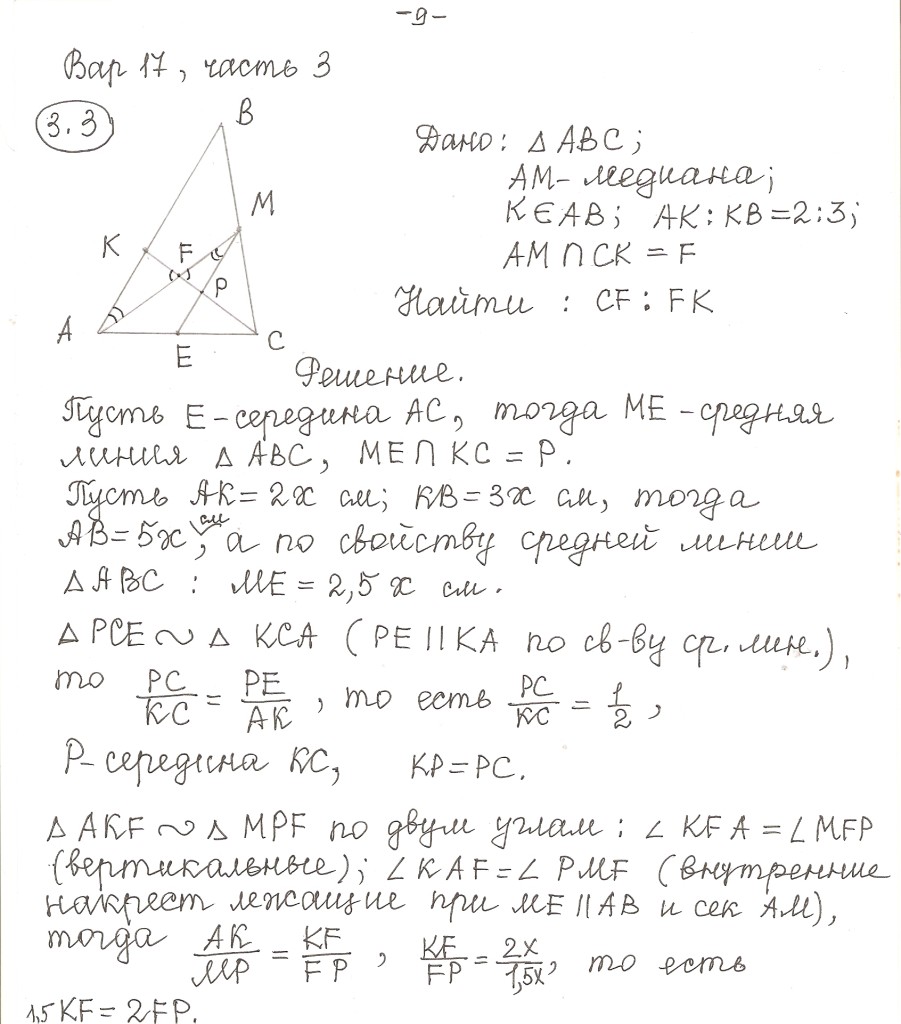 -9-
Вар 17, часть 3
3.3
B
M
K
F
P
A
E
C
Дано: △ ABC;
AM- медиана;
K∈AB; AK:KB=2:3;
AM∩CK = F
Найти : CF:FK
Решение.
Пусть E-середина AC, тогда ME-средняя
линия △ ABC, ME∩KC = P.
Пусть AK=2x см; KB=3x см, тогда
AB=5x см, а по свойству средней линии
△ABC : ME = 2,5 x см.
△ PCE ∾ △ KCA (PE||KA по св-ву ср. лин.),
то PC/KC = PE/AK, то есть PC/KC = 1/2,
P-середина KC, KP=PC.
△ AKF ∾ △ MPF по двум углам: ∠ KFA = ∠MFP
(вертикальные); ∠KAF=∠ PMF (внутренние
накрест лежащие при ME||AB и сек AM),
тогда AK/MP = KF/FP, KF/FP = 2x/1,5x, то есть
1,5KF = 2FP.